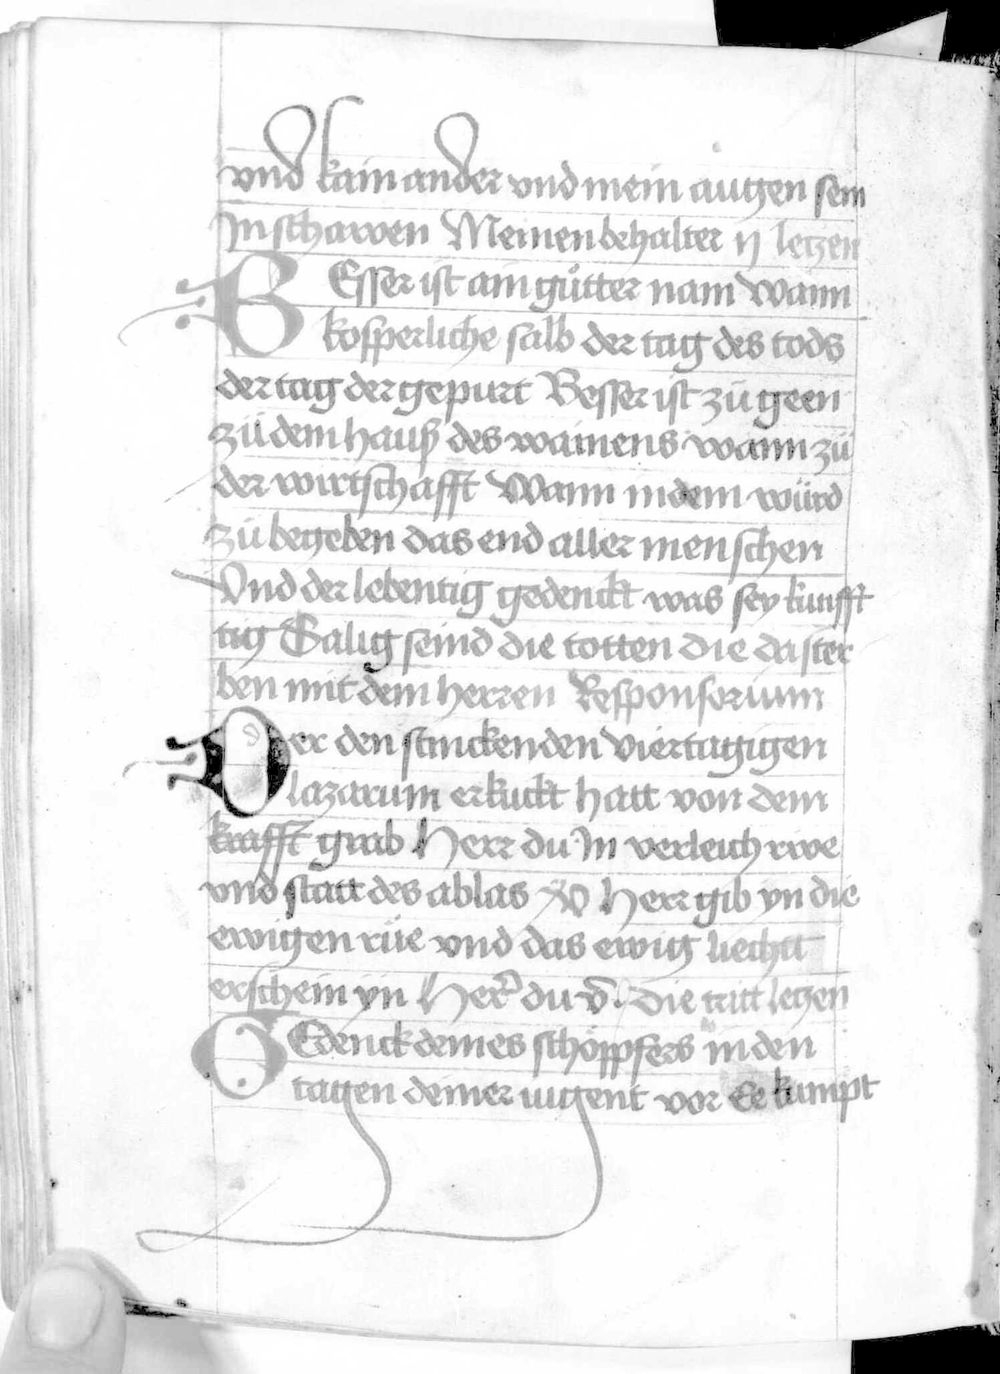 vnd kain ander vnd mein augen sein
In schawen Meinen behalter ij letzen
BEsser ist ain gůtter nam wann
kosperliche salb der tag des tods
der tag der gepurt Besser ist zü geen
zü dem hauß des wainens wann zü
der wirtschafft Wann in dem würd
zü begeben das end aller menschen
Vnd der lebentig gedenckt was sey kunfft
tig Sälig seind die totten die da ster
ben mit dem herren Responsorium
Der den stinckenden viertagigen
lazarum erkuckt hatt von dem
krafft grab Herr du In verleich rwe
vnd statt des ablas Vo Herr gib yn die
ewigen rüe vnd das ewig liechtt
erschein yn Her̃ du v̄. Die tritt letzen
GEdenck deines schöpffers in den
tagen deiner iugent vor Ee kumpt